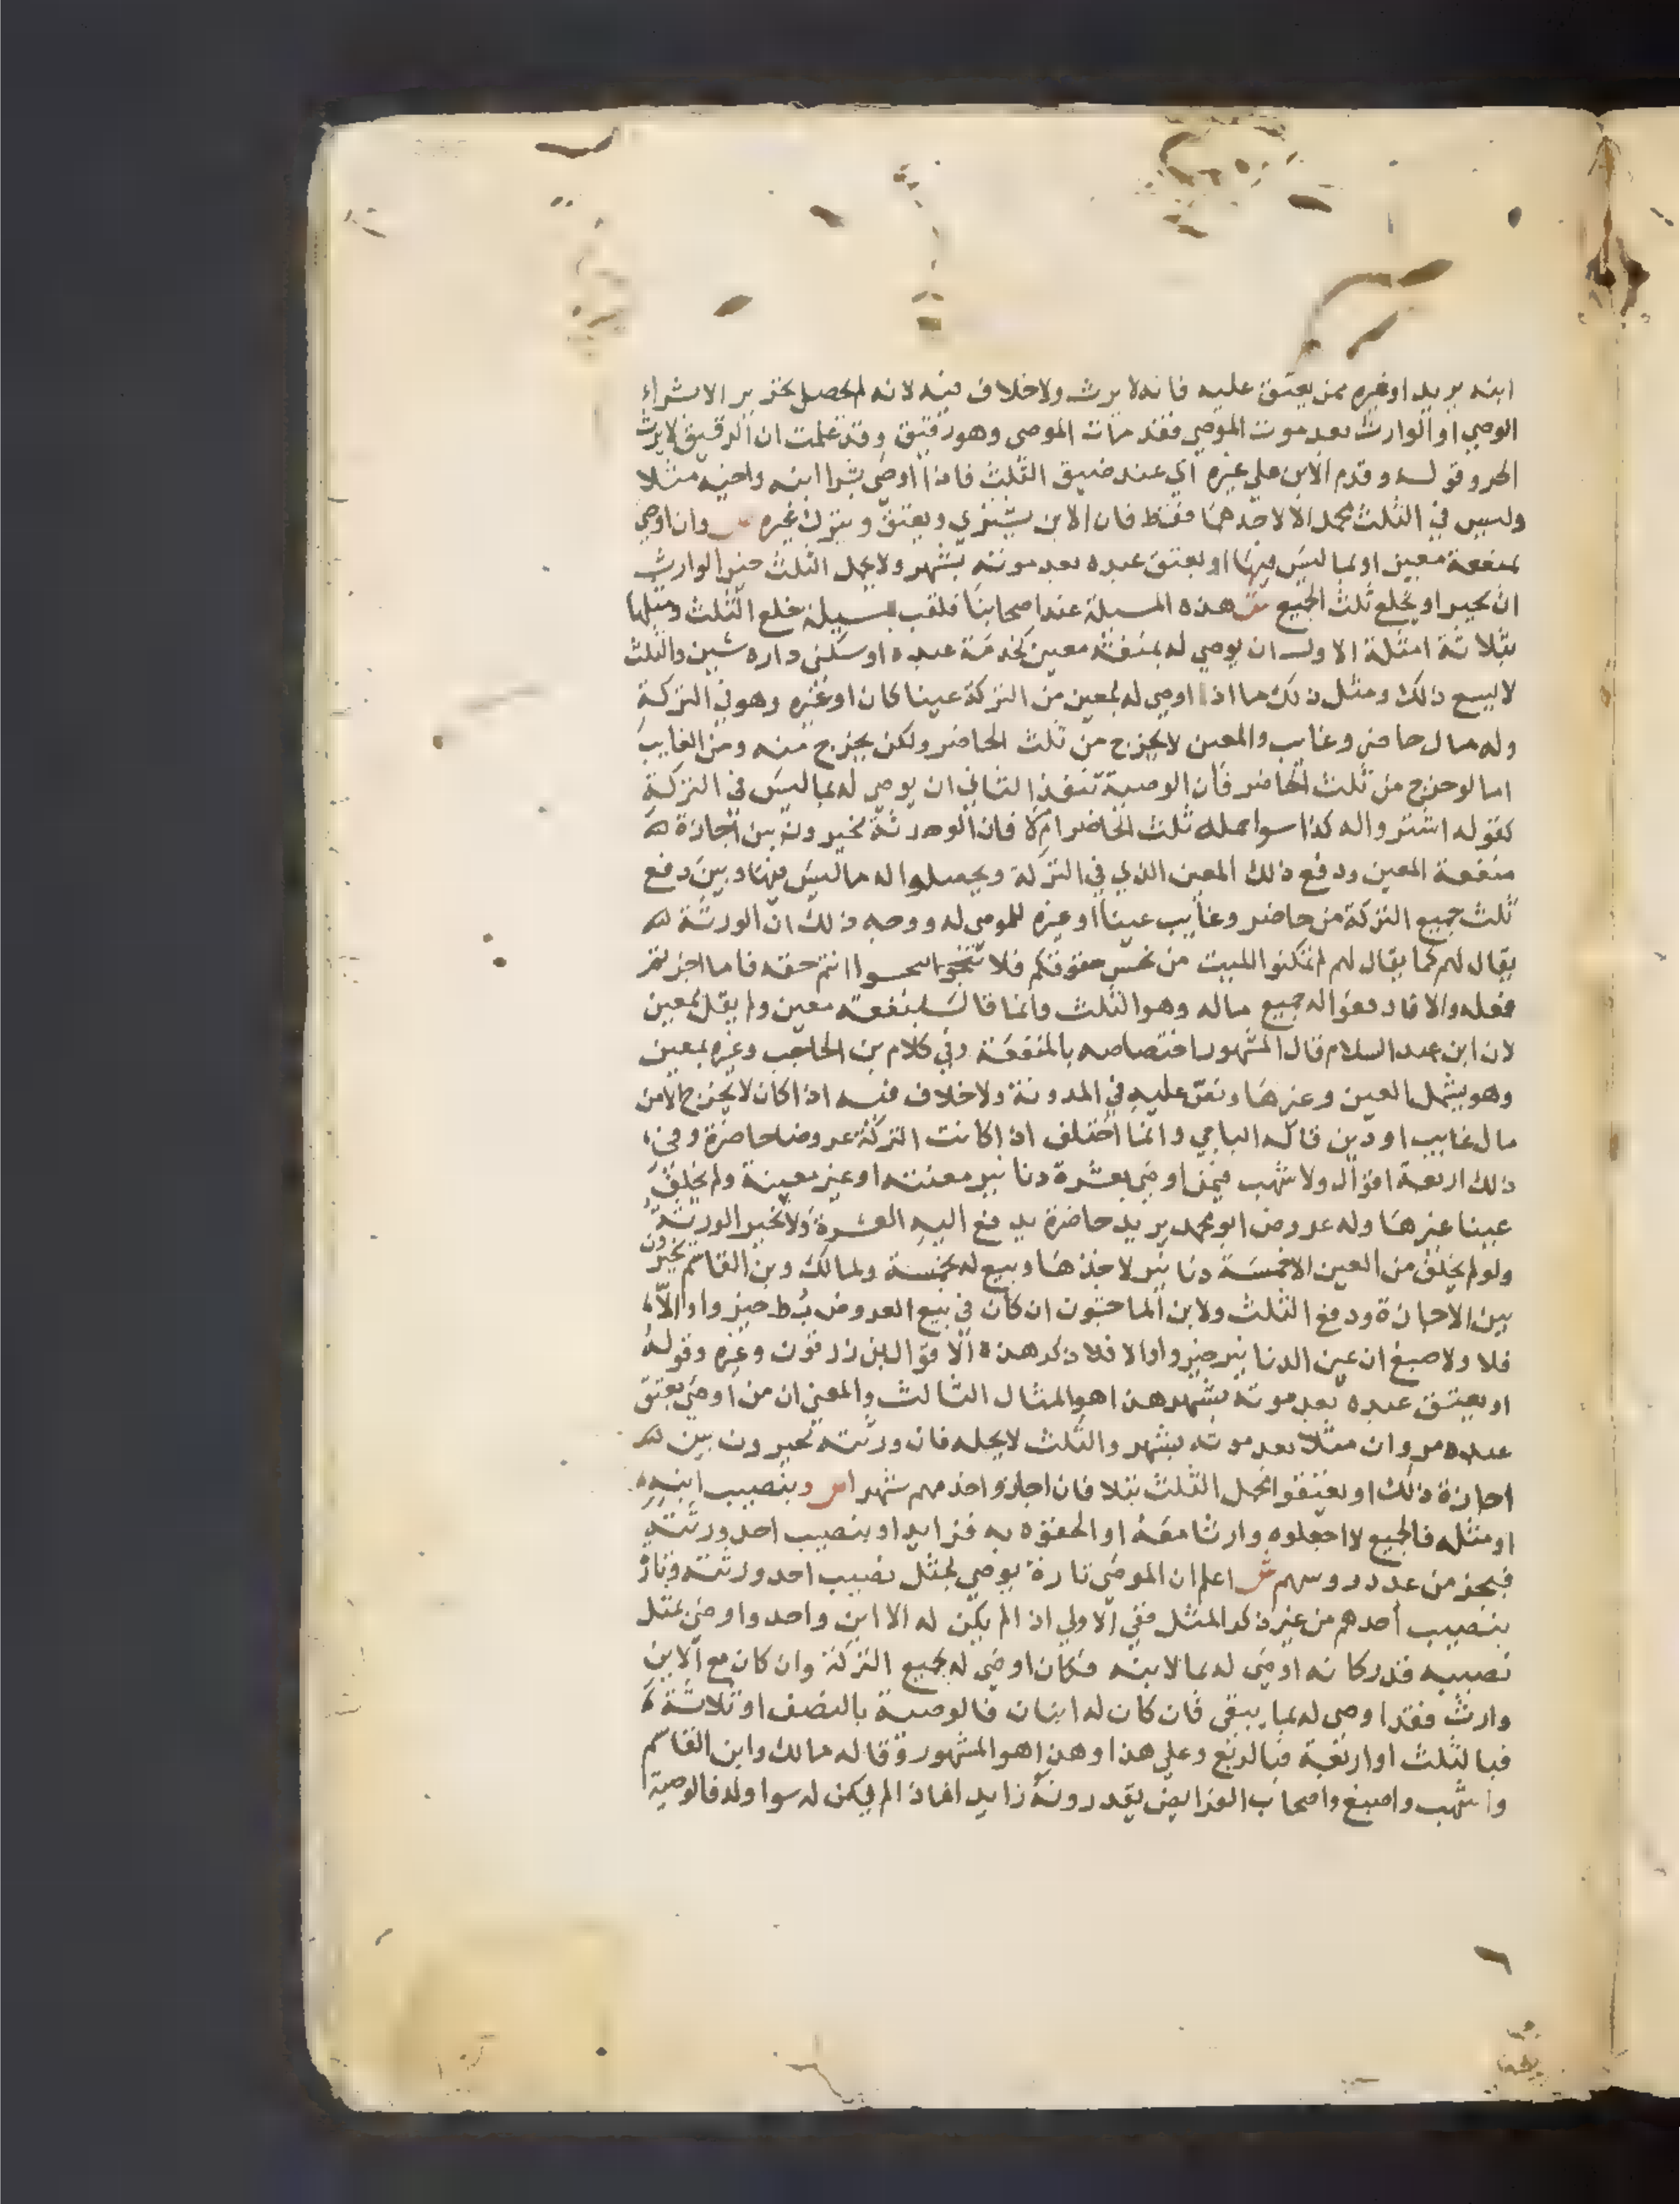 ابنه يريد او غيره ممن يعتق عليه فانه لا يرث ولا خلاف فيه لانه لم يحصل تحرير الا بشراء
الوصي او الوارث بعد موت الموصي فقد مات الموصي وهو رقيق وقد علمت ان الرقيق لا يرث
الحر وقوله وقدم الابن علي غيره اي عند ضيق الثلث فاذا اوصي بشرا ابنه واخيه مثلا
وليس في الثلث محمل الا لاحدهما فقط فان الابن يشتري ويعتق ويترك غيره ص وان اوصي
بمنفعة معين او بما ليس فيها او بعتق عبده بعد موته بشهر ولا يحمل الثلث خير الوارث
ان يجيز او يخلع ثلث الجميع ش هذه المسيلة عند اصحابنا تلقب بمسيلة خلع الثلث ومثلها
بثلاثة امثلة الاول ان يوصي له بمنفعة معين كخدمة عبده او سكني داره سنين والثلث
لا يسع ذلك ومثل ذلك ما اذا اوصي له بمعين من التركة عينا كان او غيره وهو في التركة
وله مال حاضر وغايب والمعين لا يخرج من ثلث الحاضر ولكن يخرج منه ومن الغايب
اما لو خرج من ثلث الحاضر فان الوصية تنفذ الثاني ان يوصي له بما ليس في التركة
كقوله اشتروا له كذا سوا حمله ثلث الحاضر ام لا فان الورثة يخيرون بين اجازة
منفعة المعين ودفع ذلك المعين الذي في التركة ويحصلوا له ما ليس فيها وبين دفع
ثلث جميع التركة من حاضر وغايب عينا او غيره للموصي له ووجه ذلك ان الورثة
يقال لهم كما يقال لهم لم تمكنوا الميت من بخس حقوقكم فلا انتم حقه فاما اجزتم
فعله والا فادفعوا له جميع ماله وهو الثلث وانما قال بمنفعة معين ولم يقل بمعين
لان ابن عبد السلام قال المشهور اختصاصه بالمنفعة وفي كلام بن الحاجب وغيره بمعين
وهو يشمل العين وغيرها ونص عليه في المدونة ولا خلاف فيه اذا كان لا يخرج الا من
مال غايب او دين قاله الباجي وانما اختلف اذا كانت التركة عروضا حاضرة وفي
ذلك اربعة اقوال ولاشهب فيمن اوصي بعشرة دنانير معينة او غير معينة ولم يخلف
عينا غيرها وله عروض ابو محمد يريد حاضرة يدفع اليه العشرة ولا يخير الورثة
ولو لم يخلف من العين الا خمسة دنانير لاخذها وبيع له بخمسة ولمالك وبن القاسم يخيرون
بين الاجازة ودفع الثلث ولابن الماجشون ان كان في بيع العروض بط خيروا والا
فلا ولاصبغ ان عين الدنانير خيروا والا فلا ذكر هذه الاقوال بن زرقون وغيره وقوله
او بعتق عبده بعد موته بشهر هذا هو المثال الثالث والمعني ان من اوصي بعتق
عبده مروان مثلا بعد موته بشهر والثلث لا يحمله فان ورثته يخيرون بين
اجازة ذلك او يعتقوا محمل الثلث بتلا فان اجازوا خدمهم شهرا ص وبنصيب ابنه
او مثله فالجميع لا اجعلوه وارثا معه او الحقوه به فزايد او بنصيب احد ورثته
فبجزء من عدد روسهم ش اعلم ان الموصي تارة يوصي بمثل نصيب احد ورثته وتارة
بنصيب احدهم من غير ذكر المثل ففي الاولي اذا لم يكن له الا ابن واحد واوصي بمثل
نصيبه فقدر كانه اوصي له بما لابنه فكان اوصي له بجميع التركة وان كان مع الابن
وارث فقد اوصي له بما يبقي فان كان له ابنان فالوصية بالنصف او ثلاثة
فبالثلث او اربعة فبالربع وعلي هذا وهذا هو المشهور وقاله مالك وابن القاسم
واشهب واصبغ واصحاب الفرايض يقدرونه زايدا فاذا لم يكن له سوا ولد فالوصية